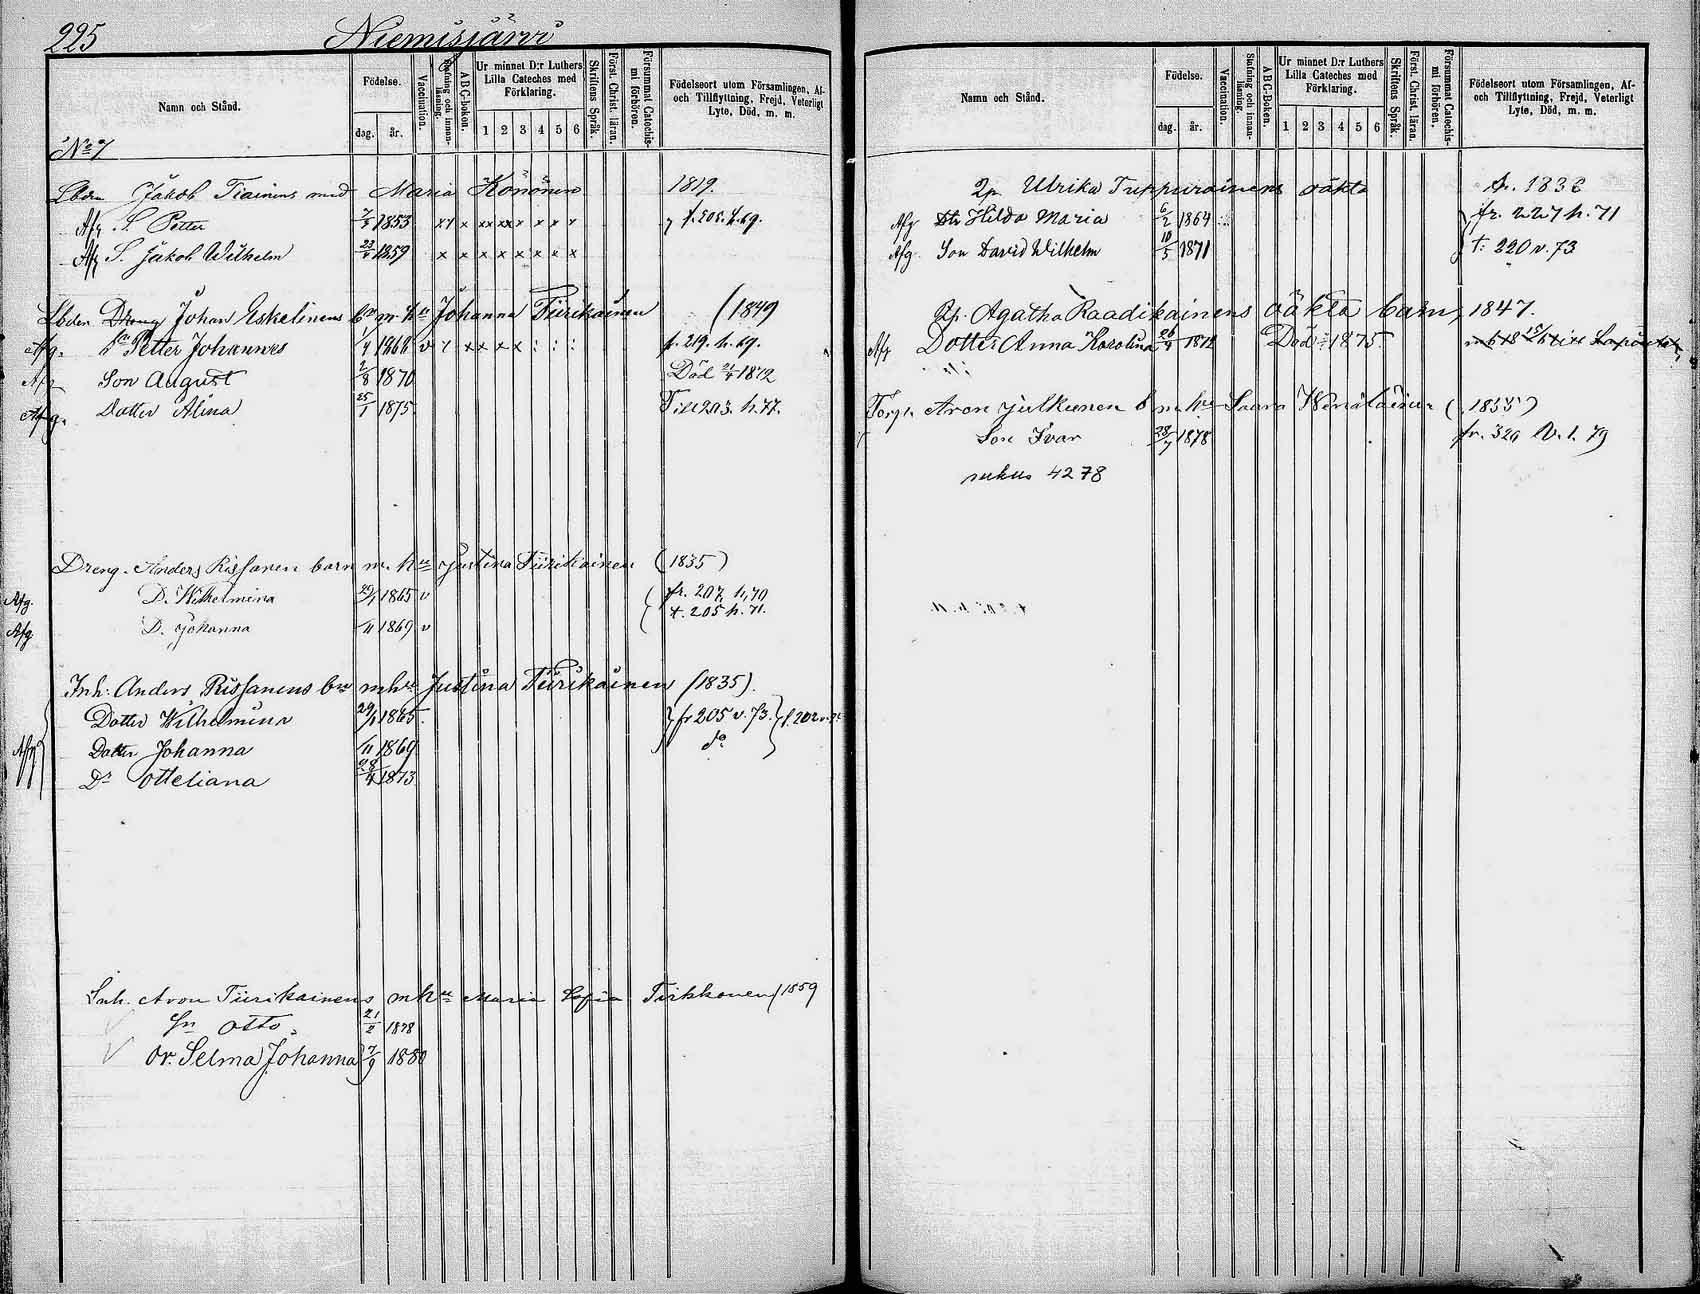 225 Niemisjärvi
Namn och Stånd.
Födelse.
dag. år.
Vaccination.
Stafning och innanläsning.
ABC-bokon.
Ur minnet D:r Luthers Lilla Cateches med Förklaring.
1 2 3 4 5 6
Skriftens Språk.
Först. Christ. läran.
Försummat Catechismi förhören.
Födelseort utom Församlingen, Af- och Tillflyttning, Frejd, Veterligt Lyte, Död, m. m.
No 7
Lbdn Jakob Tiainens med Maria Kononen 1819.
Afg S. Petter 7/3 1853 x x x x x x x x x x f. 205. h. 69.
Afg S. Jakob Wilhelm 23/4 1859 x x x x x x x x
Lbden Dreng Johan Eskelinens bn m. h. Johanna Tiirikainen (1849
Afg. Sn Petter Johannes /4 1868 v x x x x x : : : f. 219. h. 69.
Afg Son August 2/8 1870 Död 21/4 1872
Afg. Dotter Alina 25/1 1875 Till 203. h. 77.
Dreng. Anders Rissanen barn m. hu Justina Tiirikainen (1835)
Afg. D. Wilhelmina 29/1 1865 v fr. 207, h. 70
t. 205 h. 71.
Afg D. Johanna /11 1869 v
Inh: Anders Rissanens bn m hu Justina Tiirikainen (1835).
Dotter Wilhelmina 29/1 1865. fr 205 v. 73.
Afg Dotter Johanna /11 1869 do
Dr Otteliana 28/4 1873
Inh. Aron Tiirikainens m hu Maria Sofia Tirkkonen (1859
Sn Otto 21/2 1878
Dr. Selma Johanna 7/9 1880
Namn och Stånd.
Födelse.
dag. år.
Vaccination.
Stafning och innanläsning.
ABC-Boken.
Ur minnet D:r Luthers Lilla Cateches med Förklaring.
1 2 3 4 5 6
Skriftens Språk.
Först. Christ. läran.
Försummat Catechismi förhören.
Födelseort utom Församlingen, Af- och Tillflyttning, Frejd, Veterligt Lyte, Död, m. m.
Qp Ulrika Tuppurainens oäkta
Afg Dtr Hilda Maria 6/2 1864 fr. 227 h. 71
Afg. Son David Wilhelm 10/5 1871 t: 220 v. 73
Qp. Agatha Raadikainens oäkta barn, 1847.
Afg Dotter Anna Karolina 26/4 1872 Död 1875
Torp. Aron Julkunen b m. hu Saara Wenäläinen (1835)
Son Ivar 28/7 1878
4278